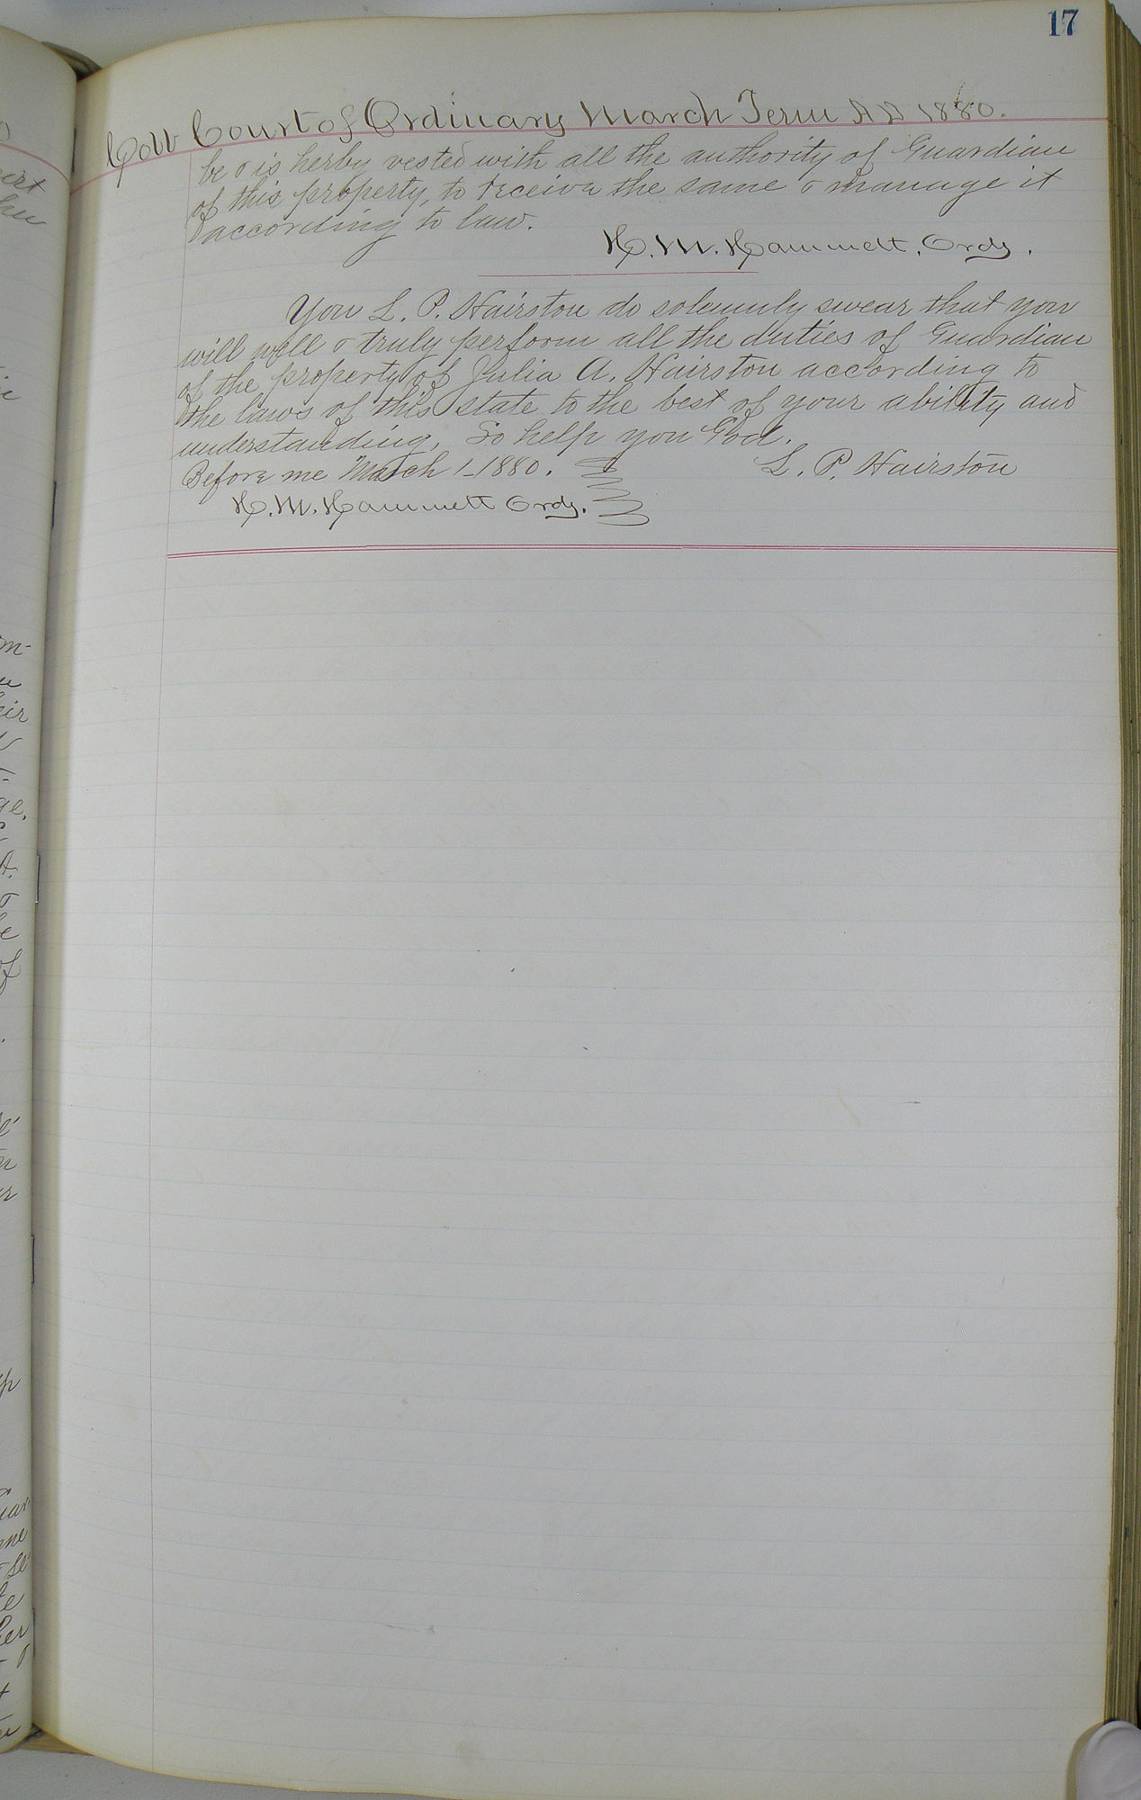 17
Cobb Court of Ordinary March Term A D 1880.
be & is herby vested with all the authority of Guardian
of this property, to receive the same & manage it
according to law.
H. M. Hammett, Ordy.
You L. P. Hairston do solemnly swear that you
will well & truly perform all the duties of Guardian
of the property of Julia A. Hairston according to
the laws of this state to the best of your ability and
understanding. So help you God.
Before me March 1-1880. L. P. Hairston
H. M. Hammett Ordy.